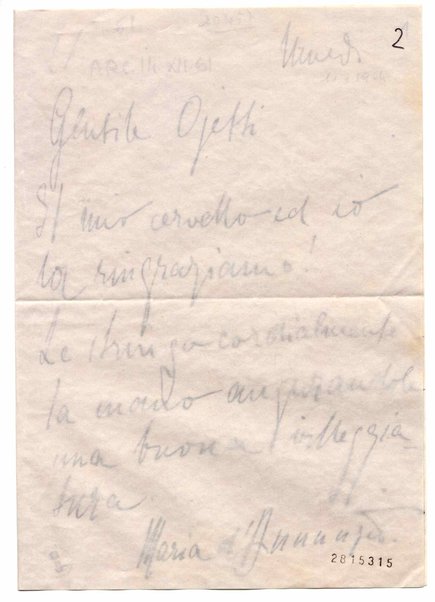 2
Gentile Ojetti
Il mio cervello ed io
La ringraziamo!
Le stringo cordialmente
la mano augurandole
una buona villeggia-
tura
Maria d'Annunzio.
2815315